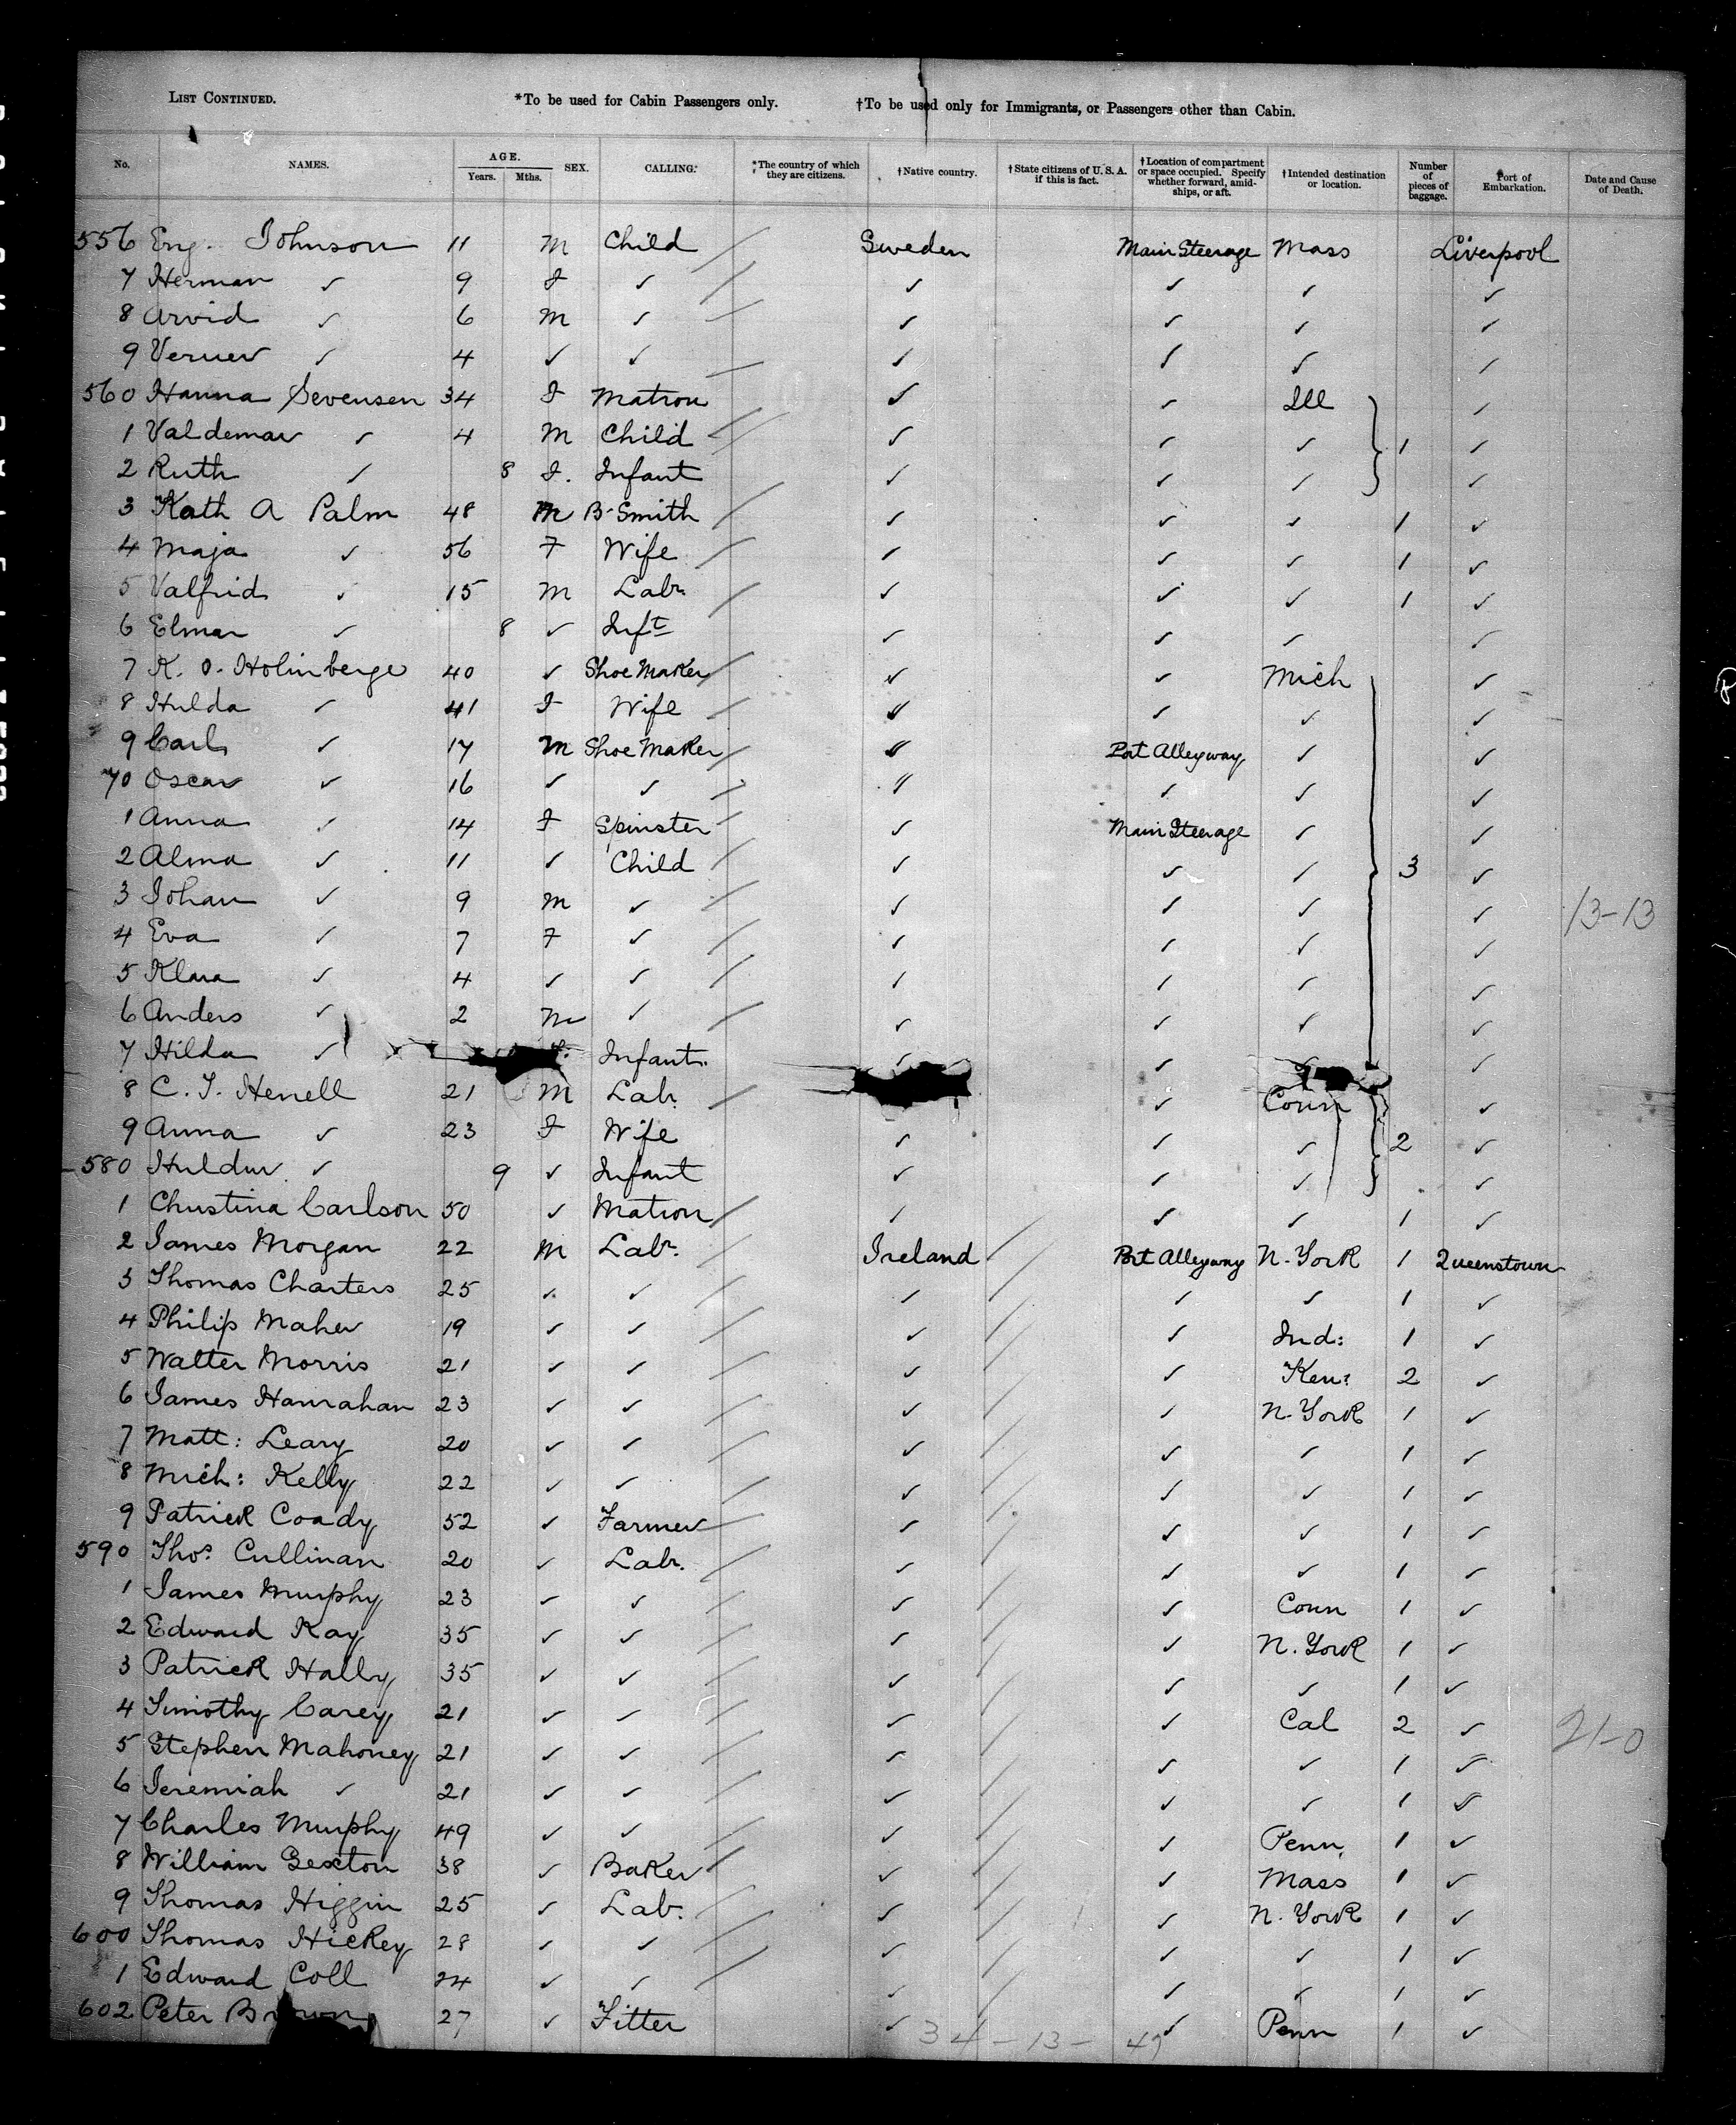 LIST CONTINUED. *To be used for Cabin Passengers only. †To be used only for Immigrants, or Passengers other than Cabin.
No. NAMES. AGE. Years. Mths. SEX. CALLING.* *The country of which they are citizens. †Native country. †State citizens of U.S.A. if this is fact. †Location of compartment or space occupied. Specify whether forward, amidships, or aft. †Intended destination or location. Number of pieces of baggage. Port of Embarkation. Date and Cause of Death.
556 Eng. Johnson 11 M Child Sweden Main Steerage Mass Liverpool
7 Herman ✓ 9 F ✓ ✓ ✓ ✓ ✓
8 Arvid ✓ 6 M ✓ ✓ ✓ ✓ ✓
9 Verner ✓ 4 ✓ ✓ ✓ ✓ ✓ ✓
560 Hanna Sevensen 34 F Matron ✓ ✓ Ill ✓
1 Valdemar ✓ 4 M Child ✓ ✓ ✓ 1 ✓
2 Ruth ✓ 8 F. Infant ✓ ✓ ✓ ✓
3 Kath A Palm 48 M B-Smith ✓ ✓ ✓ 1 ✓
4 Maja ✓ 56 F Wife ✓ ✓ ✓ 1 ✓
5 Valfrid ✓ 15 M Labr. ✓ ✓ ✓ 1 ✓
6 Elmar ✓ 8 ✓ Inft ✓ ✓ ✓ ✓
7 K. O. Holinberge 40 ✓ Shoe Maker ✓ ✓ Mich ✓
8 Hulda ✓ 41 F Wife ✓ ✓ ✓ ✓
9 Carl ✓ 17 M Shoe Maker ✓ Port Alleyway ✓ ✓
70 Oscar ✓ 16 ✓ ✓ ✓ ✓ ✓ ✓
1 Anna ✓ 14 F Spinster ✓ Main Steerage ✓ ✓
2 Alma ✓ 11 ✓ Child ✓ ✓ ✓ 3 ✓
3 Johan ✓ 9 M ✓ ✓ ✓ ✓ ✓ 13-13
4 Eva ✓ 7 F ✓ ✓ ✓ ✓ ✓
5 Klara ✓ 4 ✓ ✓ ✓ ✓ ✓ ✓
6 Anders ✓ 2 M ✓ ✓ ✓ ✓ ✓
7 Hilda ✓ Infant. ✓ ✓ ✓
8 C. J. Henell 21 M Labr. ✓ Conn ✓
9 Anna ✓ 23 F Wife ✓ ✓ ✓ 2 ✓
580 Huldur ✓ 9 ✓ Infant ✓ ✓ ✓ ✓
1 Christina Carlson 50 ✓ Matron ✓ ✓ ✓ 1 ✓
2 James Morgan 22 M Labr. Ireland Port Alleyway N. York 1 Queenstown
3 Thomas Charters 25 ✓ ✓ ✓ ✓ ✓ 1 ✓
4 Philip Maher 19 ✓ ✓ ✓ ✓ Ind: 1 ✓
5 Walter Morris 21 ✓ ✓ ✓ ✓ Ken: 2 ✓
6 James Hanrahan 23 ✓ ✓ ✓ ✓ N. York 1 ✓
7 Matt: Leary 20 ✓ ✓ ✓ ✓ ✓ 1 ✓
8 Mich: Kelly 22 ✓ ✓ ✓ ✓ ✓ 1 ✓
9 Patrick Coady 52 ✓ Farmer ✓ ✓ ✓ 1 ✓
590 Thos. Cullinan 20 ✓ Labr. ✓ ✓ ✓ 1 ✓
1 James Murphy 23 ✓ ✓ ✓ ✓ Conn 1 ✓
2 Edward Kay 35 ✓ ✓ ✓ ✓ N. York 1 ✓
3 Patrick Hally 35 ✓ ✓ ✓ ✓ ✓ 1 ✓
4 Timothy Carey 21 ✓ ✓ ✓ ✓ Cal 2 ✓ 21-0
5 Stephen Mahoney 21 ✓ ✓ ✓ ✓ ✓ 1 ✓
6 Jeremiah ✓ 21 ✓ ✓ ✓ ✓ ✓ 1 ✓
7 Charles Murphy 49 ✓ ✓ ✓ ✓ Penn. 1 ✓
8 William Sexton 38 ✓ Baker ✓ ✓ Mass 1 ✓
9 Thomas Higgin 25 ✓ Lab. ✓ ✓ N. York 1 ✓
600 Thomas Hickey 28 ✓ ✓ ✓ ✓ ✓ 1 ✓
1 Edward Coll 24 ✓ ✓ ✓ ✓ ✓ 1 ✓
602 Peter Brown 27 ✓ Fitter ✓ ✓ Penn 1 ✓
34-13-47